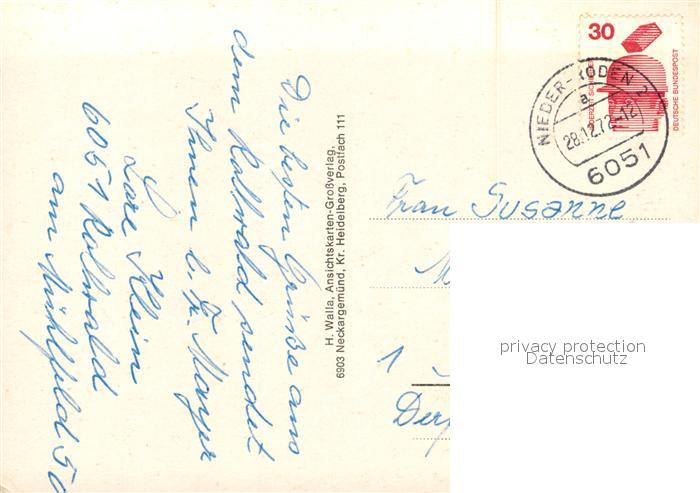 Die besten Grüße aus
dem Rollwald sendet
Ihnen l. Fr. Mayer
Lore Klein
6051 Rollwald
am Mühlfeld 5
H. Walla, Ansichtskarten-Großverlag,
6903 Neckargemünd, Kr. Heidelberg, Postfach 111
30
JEDERZEIT SICHERHEIT
DEUTSCHE BUNDESPOST
NIEDER-RODEN 2
a
28.12.72-12
6051
Frau Susanne
M
1
privacy protection
Datenschutz